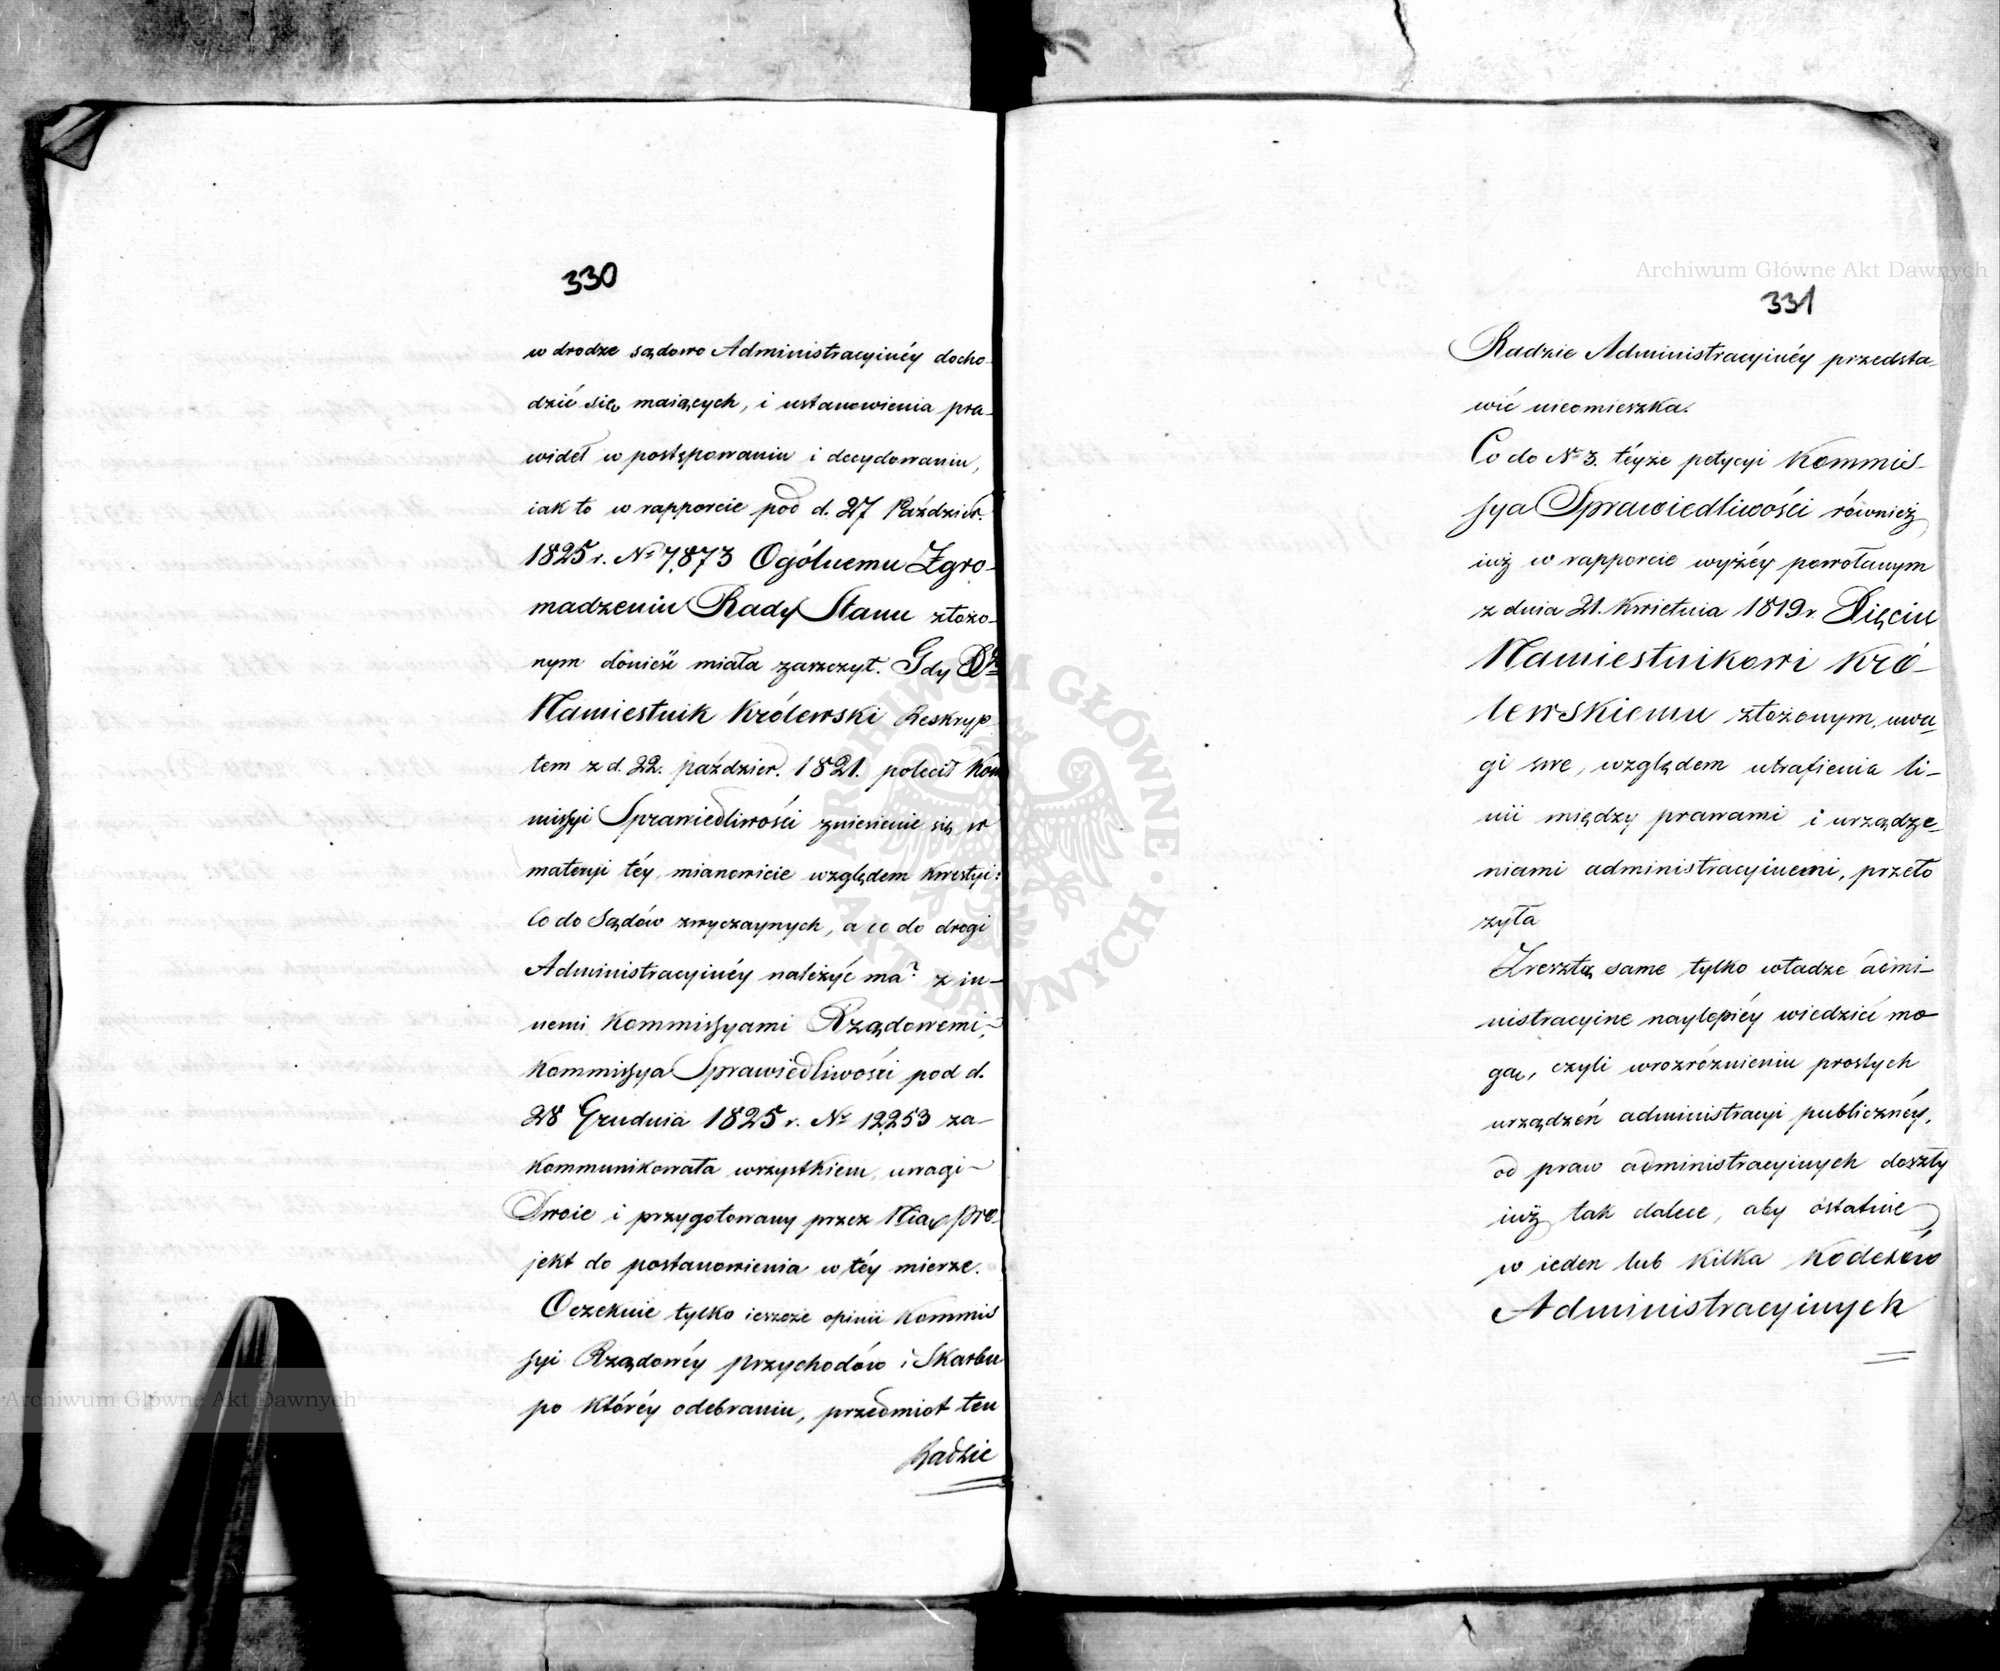 330
w drodze sądowo Administracyinéy docho-
dzić się maiących, i ustanowienia pra-
wideł w postępowaniu i decydowaniu,
iak to w rapporcie pod d. 27 Paździer.
1825 r. Nº 7,873 Ogólnemu Zgro-
madzeniu Rady Stanu złożo-
nym donieść miała zaszczyt. Gdy
Namiestnik Królewski Reskryp
tem z d. 22. paździer. 1821. polecił Kom
missyi Sprawiedliwości zniesienie się w
materyi téy, mianowicie względem kwestyi:
co do Sądów zwyczaynych, a co do drogi
Administracyinéy należyć ma? z in-
nemi Kommissyami Rządowemi,
Kommissya Sprawiedliwości pod d.
28 Grudnia 1825 r. Nr 12,253 za-
kommunikowała wszystkiem, uwagi
Swoie i przygotowany przez Nią pro-
jekt do postanowienia w téy mierze.
Oczekuie tylko ieszcze opinii Kommis
syi Rządowéy przychodów i Skarbu
po któréy odebraniu, przedmiot ten
Radzie
331
Radzie Administracyinéy przedsta-
wić nieomieszka.
Co do Nº 3. téyże petycyi Kommis-
sya Sprawiedliwości również
iuż w rapporcie wyżéy powołanym
z dnia 21. Kwietnia 1819 r. Xięciu
Namiestnikowi Kró-
lewskiemu złożonym, uwa-
gi swe, względem utrafienia li-
nii między prawami i urządze-
niami administracyinemi, przeło
żyła
Zresztą same tylko władze admi-
nistracyine naylepiéy wiedzieć mo
gą, czyli w rozróżnieniu prostych
urządzeń administracyi publicznéy,
od praw administracyinych doszły
iuż tak dalece, aby ostatnie
w ieden lub kilka Kodexów
Administracyinych
Archiwum Główne Akt Dawnych
Archiwum Główne Akt Dawnych
ARCHIWUM GŁÓWNE AKT DAWNYCH